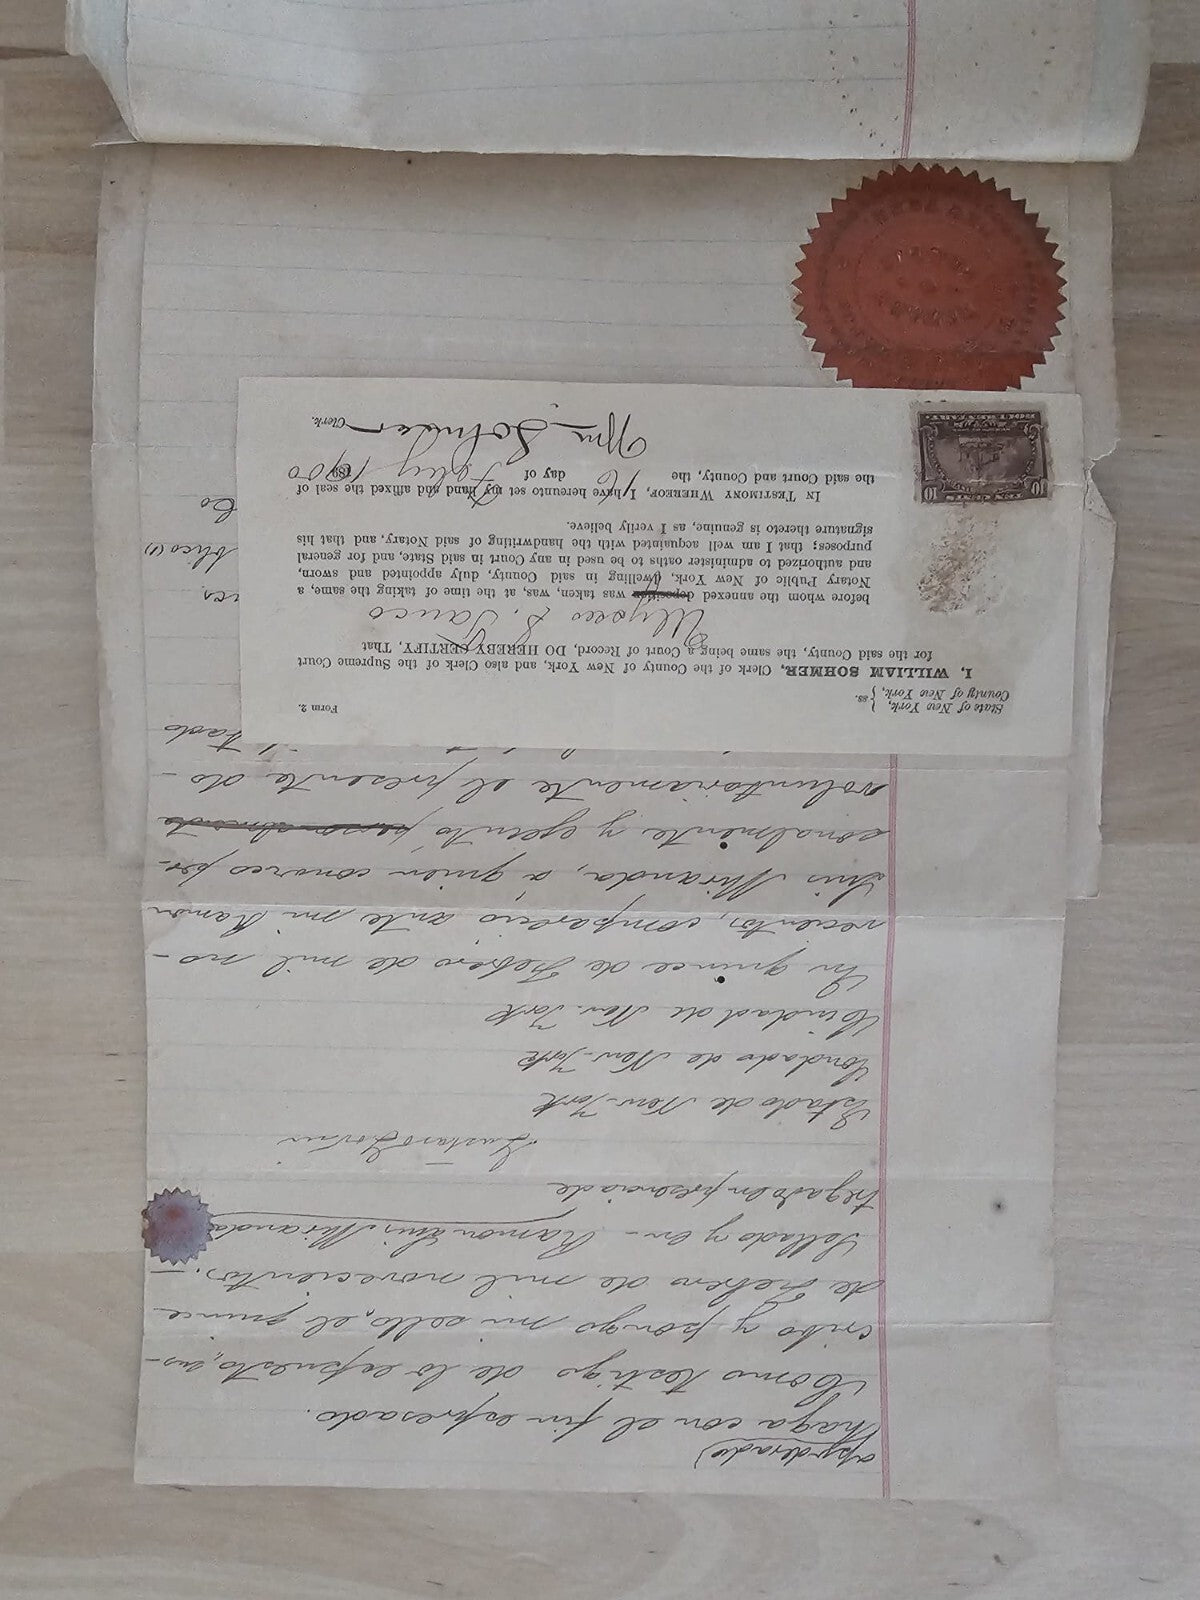 apoderado)
haga con el fin expresado.
Como testigo de lo expuesto, sus-
cribo y pongo mi sello, el quince
de Febrero de mil novecientos.-
Sellado y en- Ramon Luis Miranda
tregado en presencia de
Estado de New-York
Condado de New-York
Ciudad de New-York
En quince de Febrero de mil no-
vecientos, compareció ante mi Ramon
Luis Miranda, a quien conozco per-
sonalmente y ejecutó personalmente
voluntariamente el presente do-
Form 2.
State of New York,
County of New York, } ss.
I, WILLIAM SOHMER, Clerk of the County of New York, and also Clerk of the Supreme Court
for the said County, the same being a Court of Record, DO HEREBY CERTIFY, That
Ulysses S.
before whom the annexed deposition was taken, was, at the time of taking the same, a
Notary Public of New York, dwelling in said County, duly appointed and sworn,
and authorized to administer oaths to be used in any Court in said State, and for general
purposes; that I am well acquainted with the handwriting of said Notary, and that his
signature thereto is genuine, as I verily believe.
IN TESTIMONY WHEREOF, I have hereunto set my hand and affixed the seal of
the said Court and County, the 16 day of Feby 1900
Wm Sohmer Clerk.
TEN CENTS
10 10
DOCUMENTARY